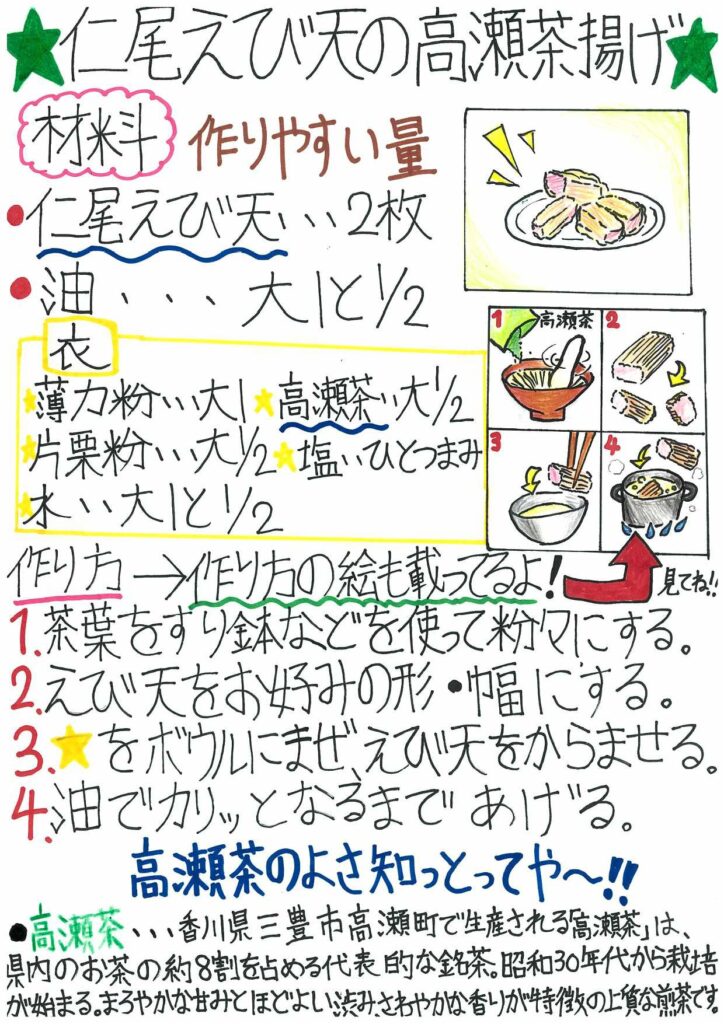 仁尾えび天の高瀬茶揚げ
材料 作りやすい量
仁尾えび天・・・2枚
油・・・大1と1/2
衣
★薄力粉・・・大1 ★高瀬茶・・大1/2
★片栗粉・・・大1/2 ★塩・・ひとつまみ
★水・・・大1と1/2
1 高瀬茶
2
3
4
作り方→作り方の絵も載ってるよ!
見てね!!
1.茶葉をすり鉢などを使って粉々にする。
2.えび天をお好みの形・幅にする。
3.★をボウルにまぜ、えび天をからませる。
4.油でカリッとなるまであげる。
高瀬茶のよさ知っとってや～!!
●高瀬茶・・・香川県三豊市高瀬町で生産される「高瀬茶」は、
県内のお茶の約8割を占める代表的な銘茶。昭和30年代から栽培
が始まる。まろやかな甘みとほどよい渋み、さわやかな香りが特徴の上質な煎茶です。